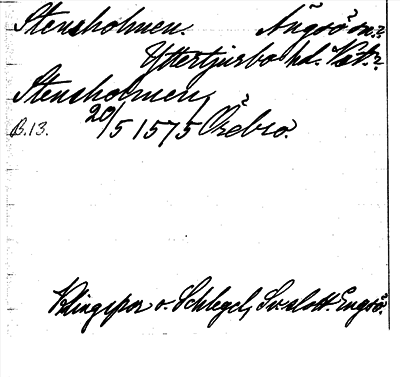 Stensholmen. Ängsö sn.?
Yttertjurbo hd. Vstm.?
Stensholmen,
B.13. 20/5 1575 Örebro.
Klingspor o. Schlegel, Sv. slott. Engsö.